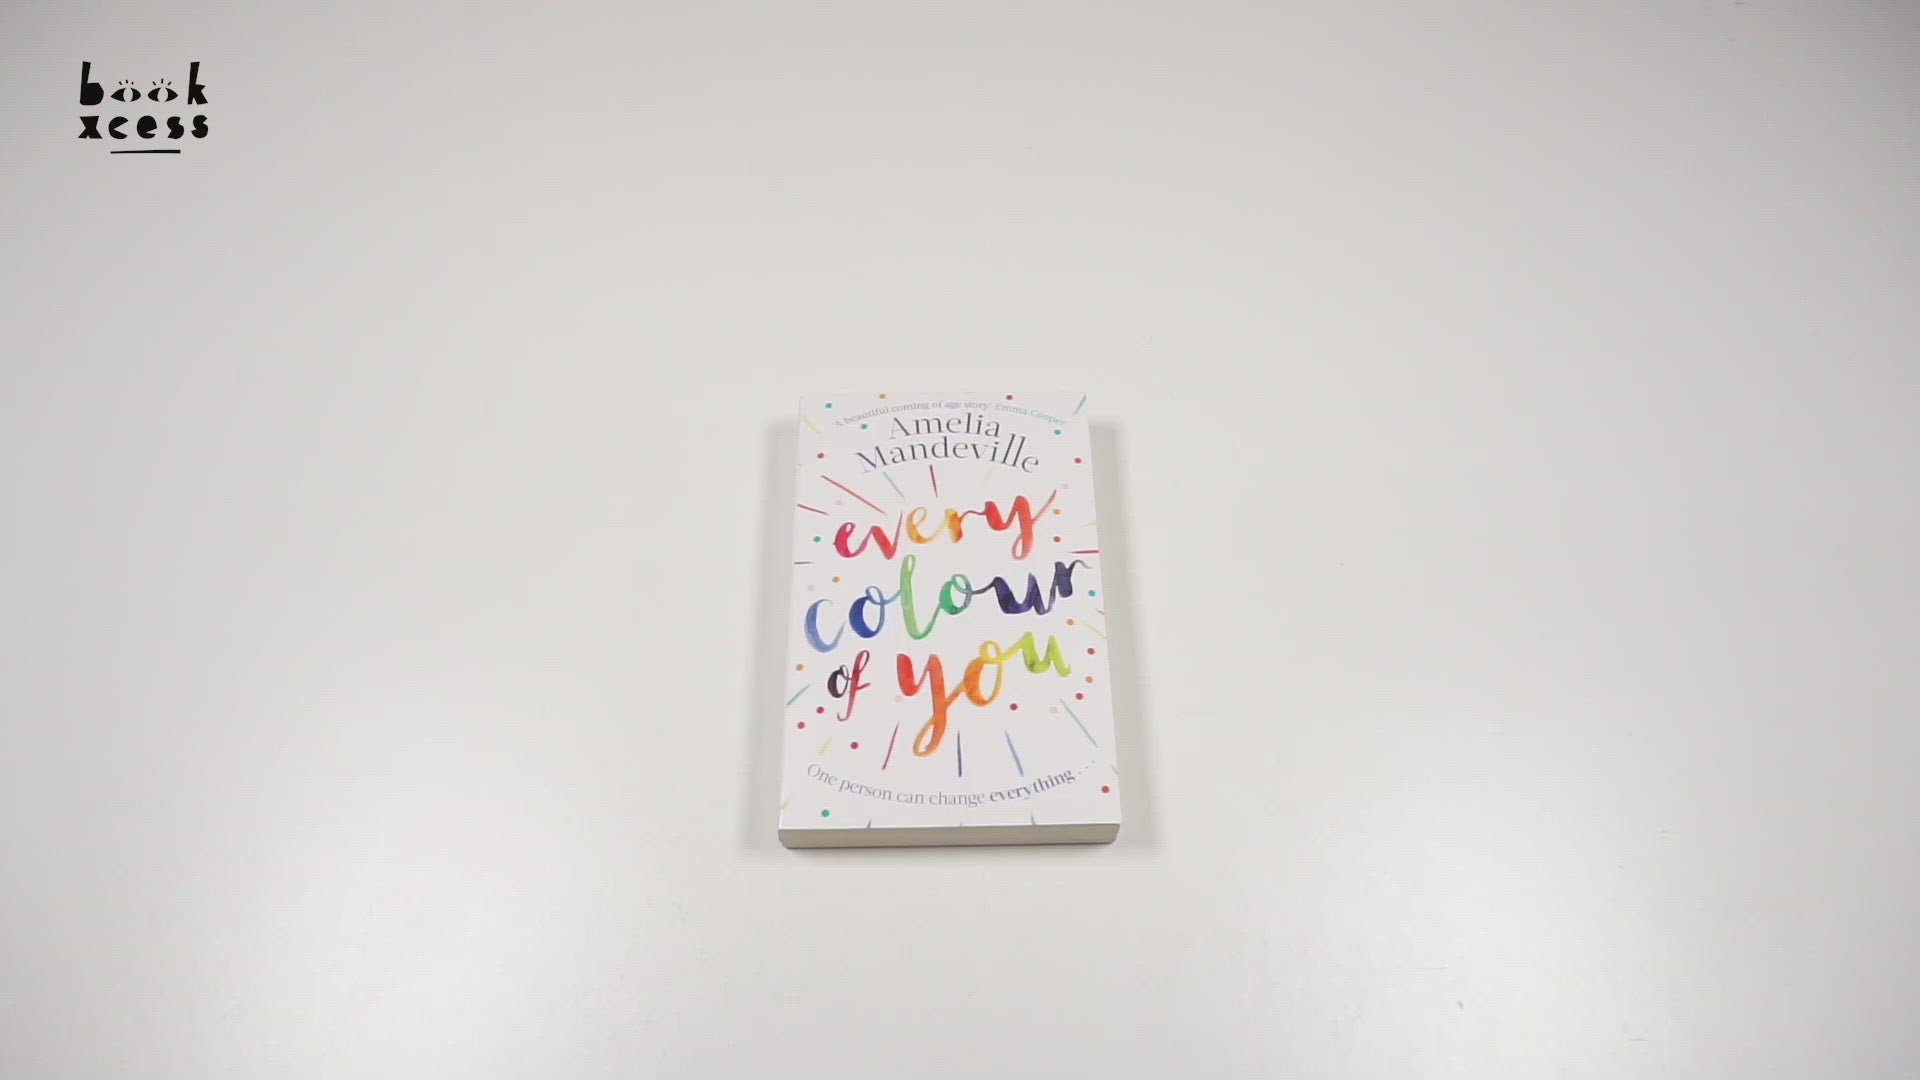 book
xcess
'A beautiful coming of age story' Emma Cooper
Amelia
Mandeville
every
colour
of you
One person can change everything...